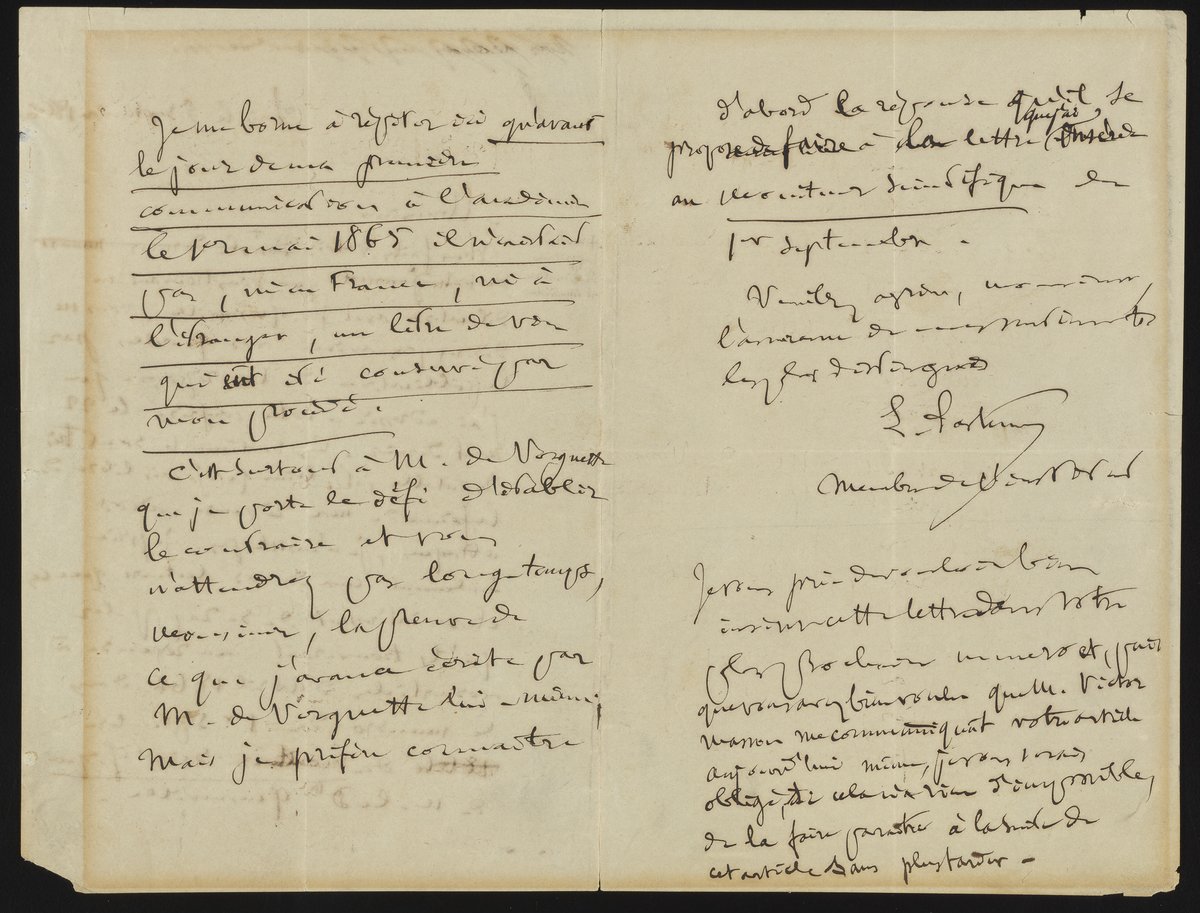 Je me borne à répéter ici qu'avant
le jour de ma première
communication à l'académie
le 1er mai 1865 il n'existait
pas, ni en France, ni à
l'étranger, un litre de vin
qui eut été conservé par
mon procédé.
C'est surtout à M. de Vergnette
que je porte le défi d'établir
le contraire et vous
n'attendrez pas longtemps,
monsieur, la preuve de
ce que j'avance écrite par
M. de Vergnette lui-même;
Mais je préfère connaître
d'abord la réponse qu'il se
propose de faire à la lettre que j'ai insérée
au moniteur scientifique du
1er septembre.
Veuillez agréer, monsieur,
l'assurance de mes sentiments
les plus distingués
L. Pasteur
Membre de l'institut
Je vous prie de vouloir bien
insérer cette lettre dans votre
plus prochain numero et, puis
que vous avez bien voulu que M. Victor
Masson me communiquât votre article
aujourd'hui même, je vous serais
obligé, si cela n'a rien d'impossible,
de la faire paraître à la suite de
cet article sans plus tarder –